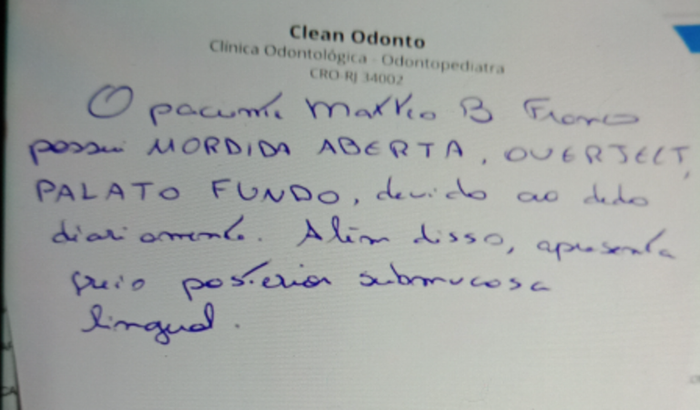 Clean Odonto
Clínica Odontológica - Odontopediatra
CRO-RJ 34002
O paciente Matteo B Franco
possui MORDIDA ABERTA, OVERJECT,
PALATO FUNDO, devido ao dedo
diariamente. Além disso, apresenta
freio posterior submucosa
lingual.